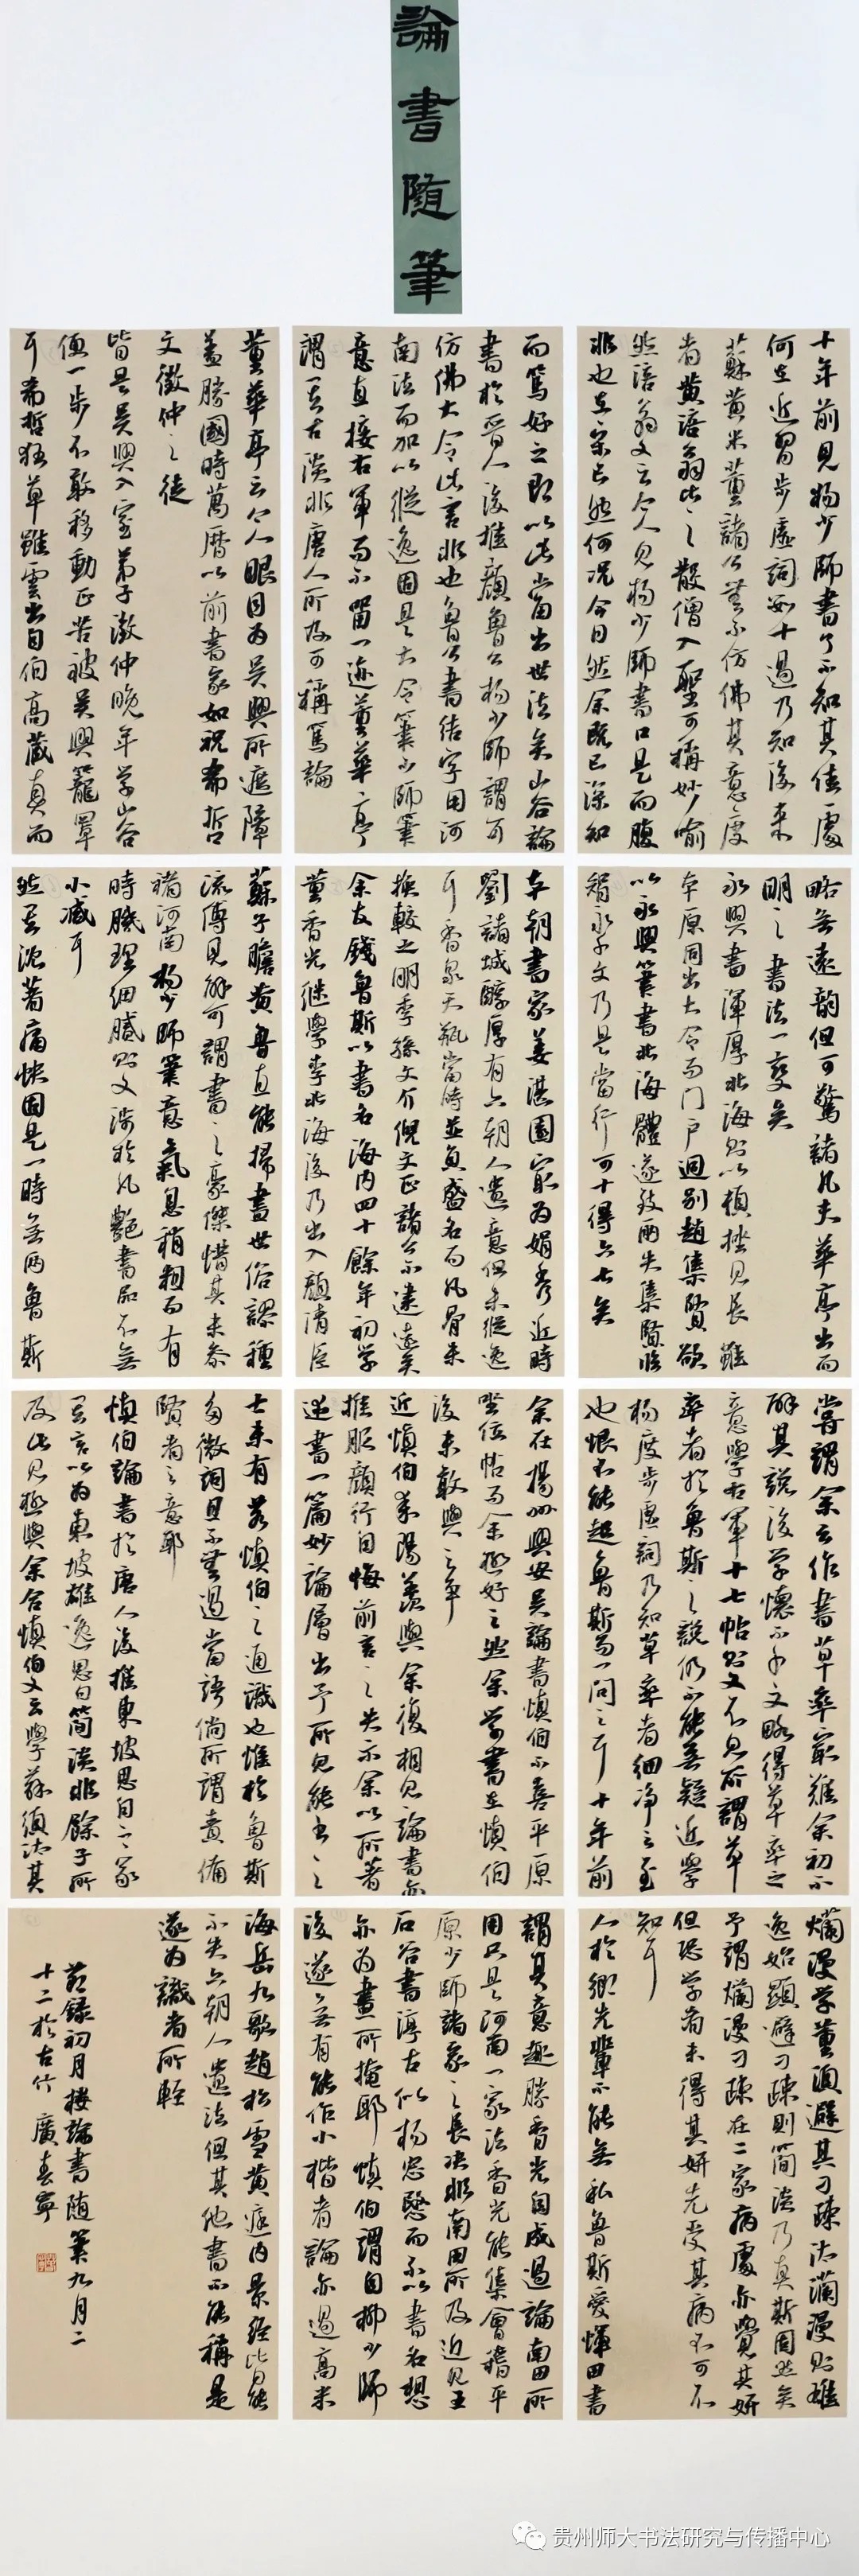 論書隨筆
十年前見楊少師書了不知其佳處
何在近習步虛詞四十過乃知後來
蘇黃米董諸公無不仿佛其意度
者黃涪翁比之散僧入聖可稱妙喻
然涪翁又云今人見楊少師書口是而腹
非也在宋已然何況今日然余既已深知
而篤好之即以此當出世法矣山谷論
書於晉人後推顏魯公楊少師謂可
仿佛大令此言非也魯公書結字用河
南法而加以縱逸固是大令筆少師筆
意直接右軍而不留一迹董華亭
謂其古淡非唐人所及可稱篤論
董華亭云今人眼目為吳興所遮障
蓋勝國時萬曆以前書家如祝希哲
文徵仲之徒
皆是吳興入室弟子徵仲晚年學山谷
便一步不敢移動正苦被吳興籠罩
耳希哲狂草雖云出自伯高藏真而
略無遠韻但可驚諸凡夫華亭出而
明之書法一變矣
永興書渾厚北海則以頓挫見長雖
本原同出大令而門戶迥別趙集賢欲
以永興筆書北海體遂致兩失集賢臨
智永千文乃是當行可十得六七矣
本朝書家姜湛園最為娟秀近時
劉諸城醇厚有六朝人遺意但未縱逸
耳香泉天瓶當時並負盛名而風骨未
換較之明季孫文介倪文正諸公不逮遠矣
余友錢魯斯以書名海內四十餘年初學
董香光繼學李北海後乃出入顏清臣
蘇子瞻黃魯直能掃盡世俗謬種
流傳見解可謂書之豪傑惜其未參
褚河南楊少師筆意氣息稍粗而有
時肌理細膩則又涉於凡艷書品不無
小減耳
然其沈著痛快固是一時無兩魯斯
嘗謂余云作書草率最難余初不
解其說後學懷仁千文略得草率之
意學右軍十七帖則又不見所謂草
率者於魯斯之說仍不能無疑近學
楊度步虛詞乃知草率者細淨之至
也恨不能起魯斯而一問之耳十年前
余在揚州與安吳論書慎伯不喜平原
坐位帖而余極好之然余當書在慎伯
後未敢與之爭
近慎伯來陽羨與余復相見論書亦
推服顏行自悔前言之失示余以所著
述書一篇妙論層出予所見能書之
士未有若慎伯之通識也惟於魯斯
多微詞且不無過當語倘所謂責備
賢者之意耶
慎伯論書於唐人後推東坡思白二家
其言以為東坡雄逸思白簡淡非餘子所
及此見極與余合慎伯又云學蘇須汰其
爛漫學董須避其刁疎汰瀾漫則雄
逸始顯避刁疎則簡淡乃真斯固然矣
予謂爛漫刁疎在二家病處亦覺其妍
但恐學者未得其妍先受其病不可不
知耳
人於鄉先輩不能無私魯斯愛惲田書
謂其意趣勝香光固成過論南田所
用只是河南一家法香光能集會稽平
原少師諸家之長決非南田所及近見王
石谷書淳古似楊忠愍而不以書名想
亦為畫所掩耶慎伯謂自柳少師
後遂無有能作小楷者論亦過高米
海岳九歌趙松雪黃庭內景經皆能
不失六朝人遺法但其他書不能稱是
遂為識者所輕
節錄初月樓論書隨筆九月二
十二於古竹 廣春寧
贵州师大书法研究与传播中心